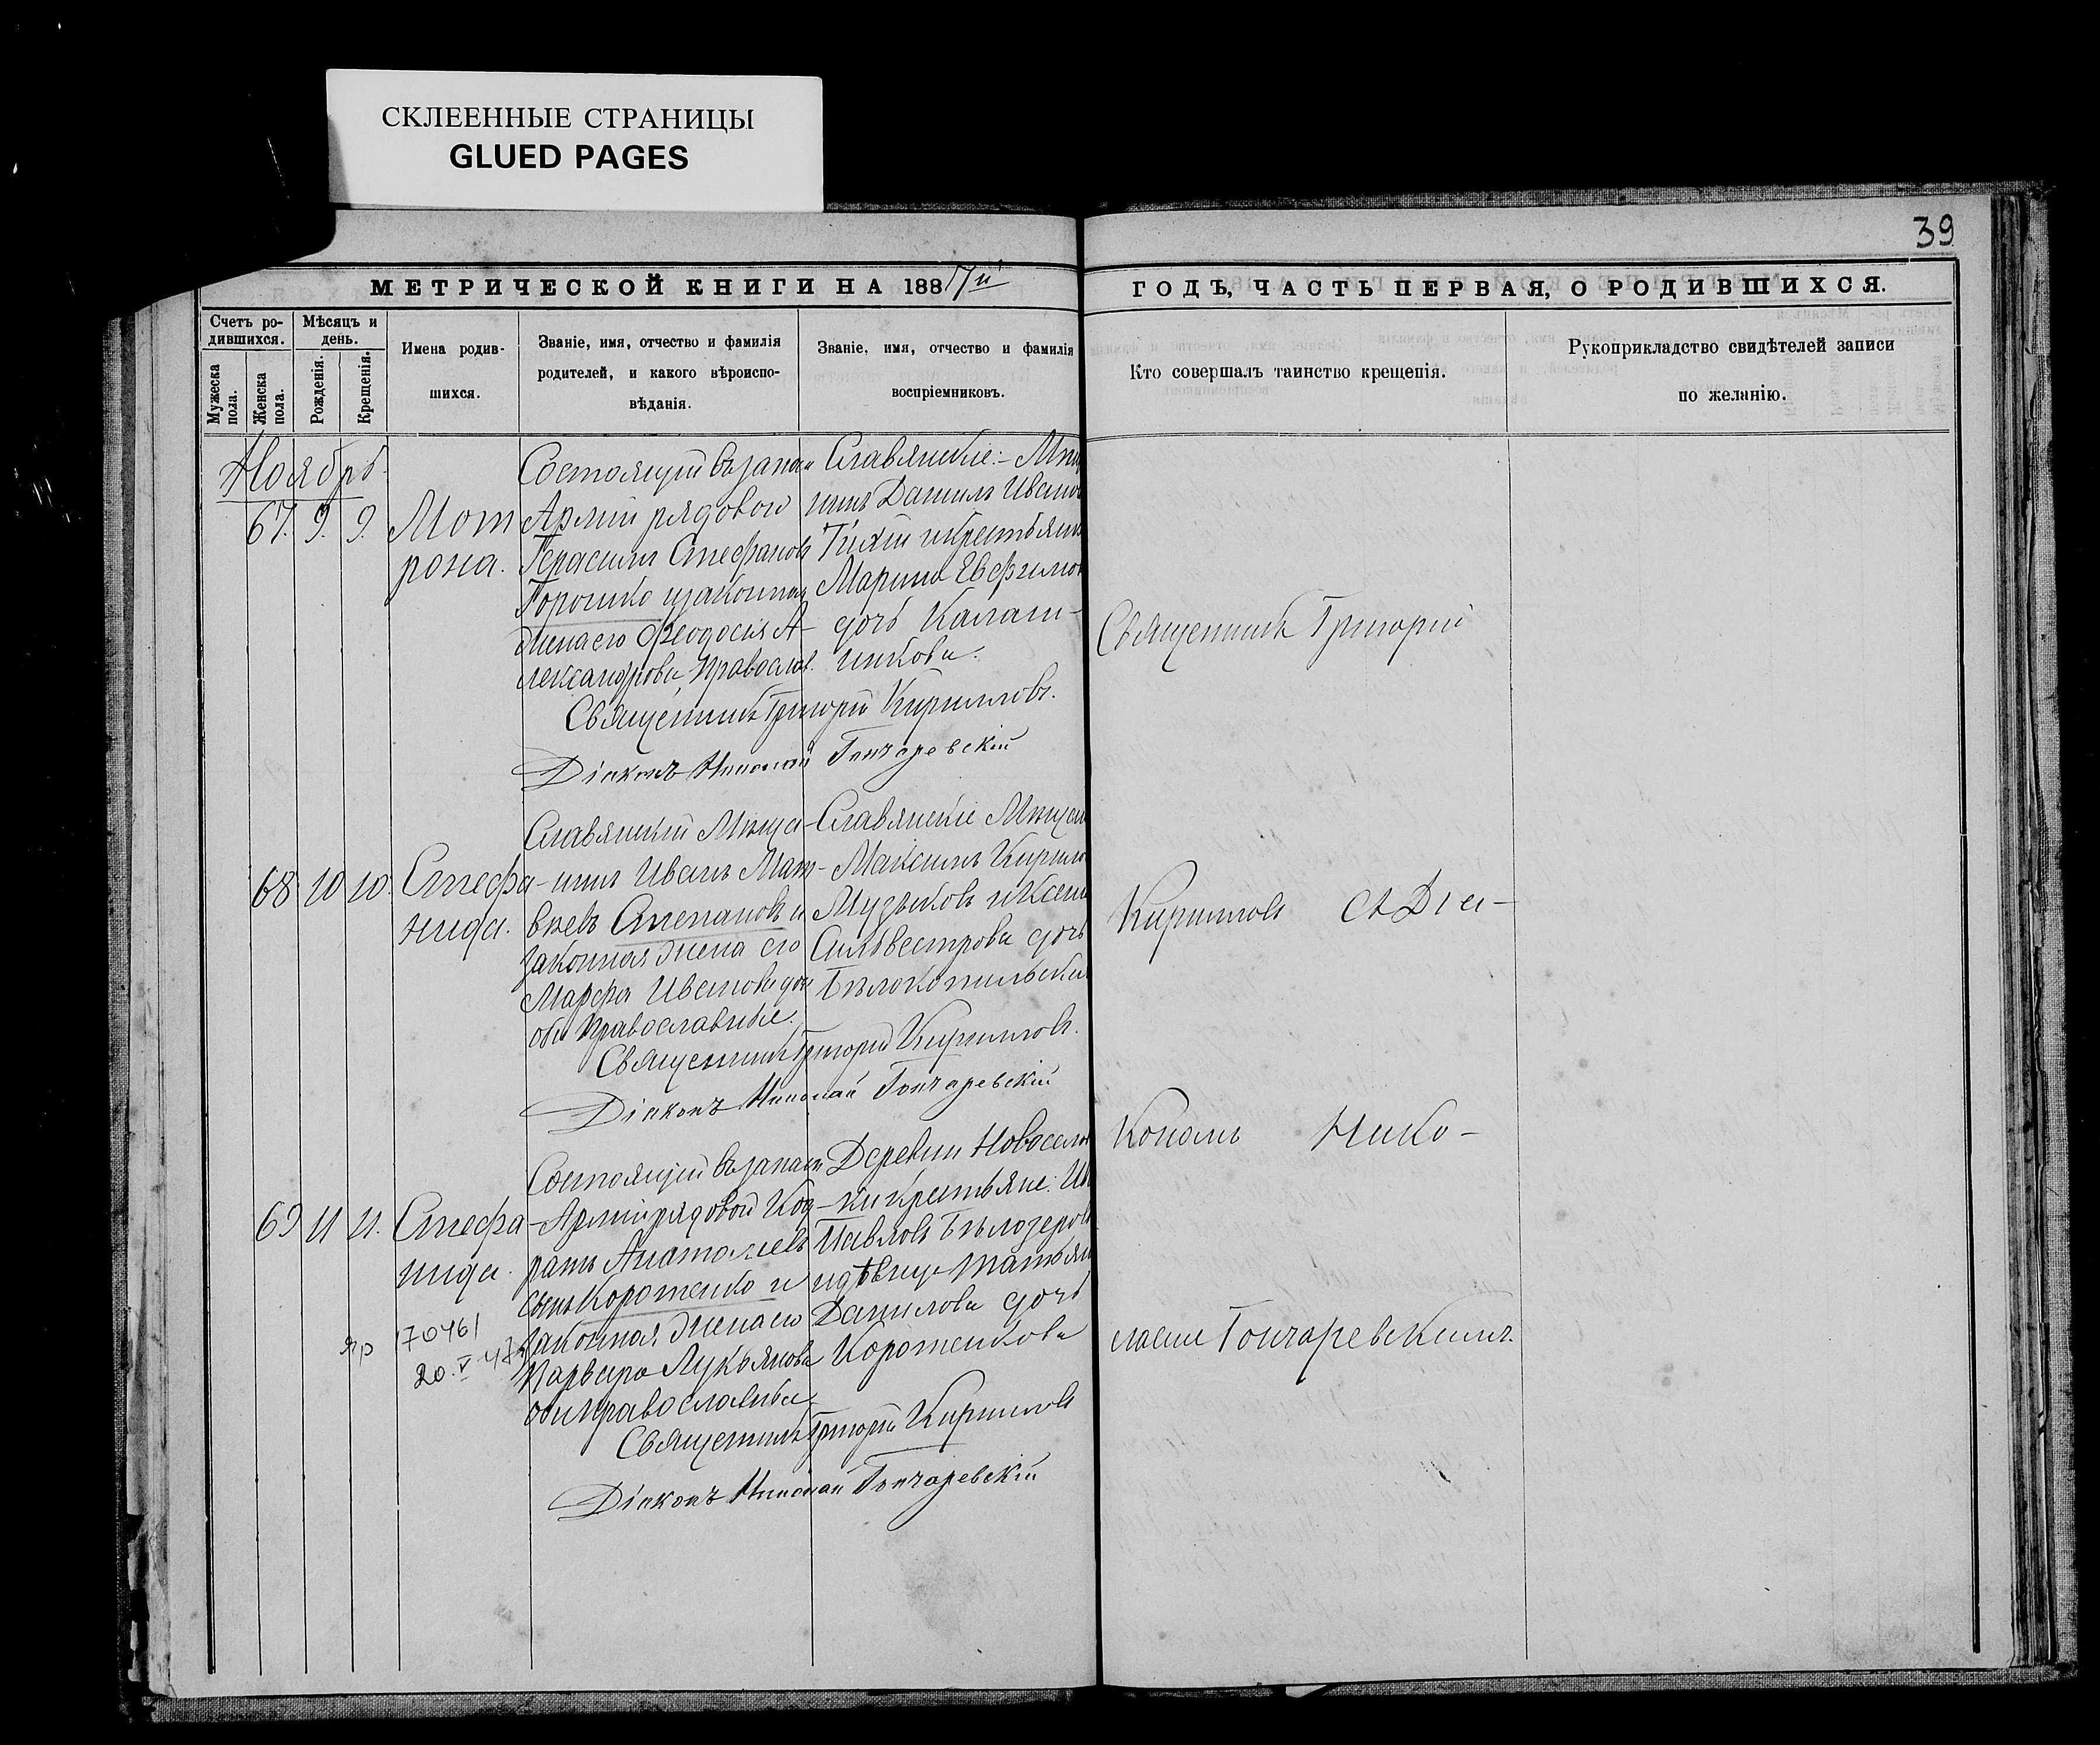 СКЛЕЕННЫЕ СТРАНИЦЫ
GLUED PAGES
39
МЕТРИЧЕСКОЙ КНИГИ НА 1887й
ГОДЪ, ЧАСТЬ ПЕРВАЯ, О РОДИВШИХСЯ.
Счетъ ро-
дившихся.
Мужеска
пола.
Женска
пола.
Мѣсяцъ и
день.
Рожденія.
Крещенія.
Имена родив-
шихся.
Званіе, имя, отчество и фамилія
родителей, и какого вѣроиспо-
вѣданія.
Званіе, имя, отчество и фамилія
воспріемниковъ.
Кто совершалъ таинство крещенія.
Рукоприкладство свидѣтелей записи
по желанію.
Ноябрь
67. 9. 9.
Мот
рона.
Состоящій въ запасѣ
Арміи рядовой
Герасимъ Стефановъ
Горошко и законная
жена его Феодосія А-
лександрова, Православ.
Славянскіе:- Мѣщ
нинъ Даніилъ Ивано
Тихій и крестьянк
Марина Евфимов
дочь Калаш-
никова.
Священникъ Григорій Кирилловъ.
Діаконъ Николай Гончаревскій
68 10 10.
Стефа-
нида.
Славянскій Мѣща-
нинъ Иванъ Мат-
вѣевъ Степановъ и
законная жена его
Марфа Иванова дочь
оба Православные.
Славянскіе Мѣщан
Максимъ Кирило
Мудыковъ и Ксені
Сильвестрова дочь
Священникъ Григорій Кирилловъ.
Діаконъ Николай Гончаревскій
69 11 11.
Стефа-
нида.
Состоящій въ запасѣ
Арміи рядовой Код-
ратъ Анатоліевъ
сынъ Коротенко и
законная жена его
Варвара Лукьянова
оба православные
Деревни Новоселов
ки крестьяне: Ив
Павловъ Бѣлозеровъ
и дѣвица Татьян
Данилова дочь
Коротенкова
70461
20.V 47
Священникъ Григорій Кирилловъ
Діаконъ Николай Гончаревскій
Священникъ Григорій
Кирилловъ съ Діа-
кономъ Нико-
лаемъ Гончаревскимъ.